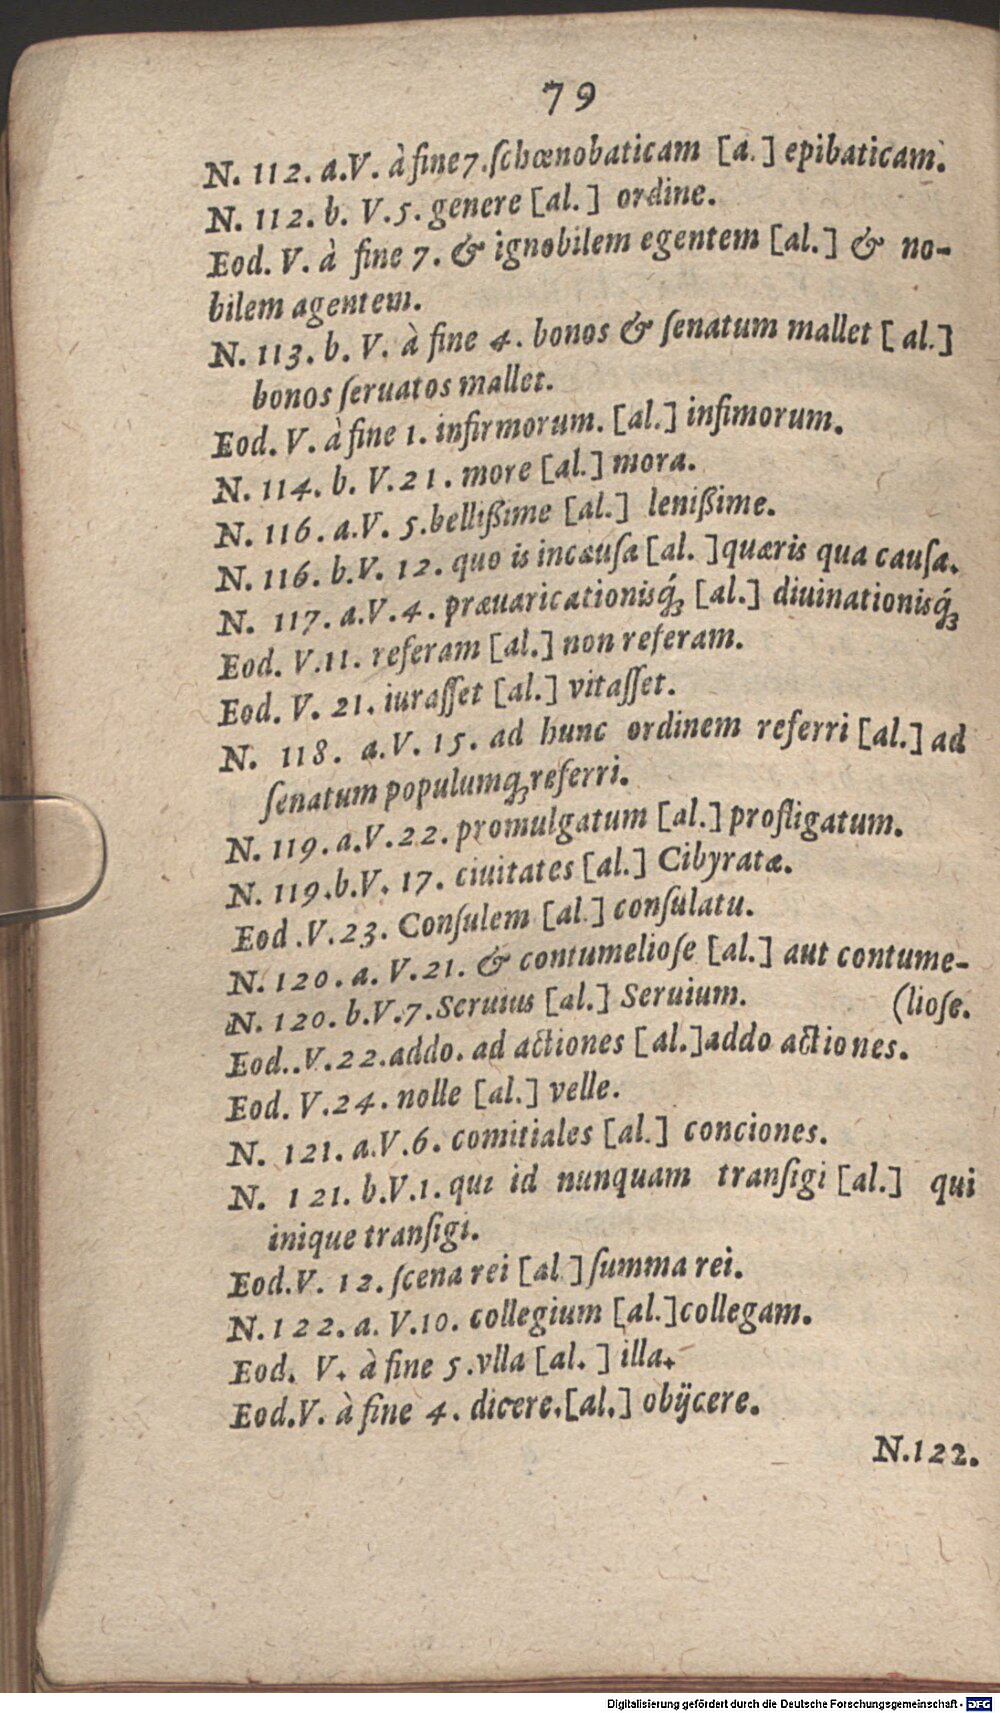 79
N. 112. a.V. à fine 7. ſchœnobaticam [a.] epibaticam.
N. 112. b. V. 5. genere [al.] ordine.
Eod. V. à fine 7. & ignobilem egentem [al.] & no-
bilem agentem.
N. 113. b. V. à fine 4. bonos & ſenatum mallet [al.]
bonos ſeruatos mallet.
Eod. V. à fine 1. infirmorum. [al.] infimorum.
N. 114. b. V. 21. more [al.] mora.
N. 116. a.V. 5. bellißime [al.] lenißime.
N. 116. b.V. 12. quo is in cauſa [al.] quæris qua cauſa.
N. 117. a.V. 4. præuaricationisq́ꝫ [al.] diuinationisq́ꝫ
Eod. V. 11. referam [al.] non referam.
Eod. V. 21. iuraſſet [al.] vitaſſet.
N. 118. a.V. 15. ad hunc ordinem referri [al.] ad
ſenatum populumqꝫ referri.
N. 119. a.V. 22. promulgatum [al.] profligatum.
N. 119. b.V. 17. ciuitates [al.] Cibyratæ.
Eod .V. 23. Conſulem [al.] conſulatu.
N. 120. a. V. 21. & contumelioſe [al.] aut contume-
N. 120. b.V. 7. Seruius [al.] Seruium. (lioſe.
Eod..V. 22. addo. ad actiones [al.] addo actiones.
Eod. V. 24. nolle [al.] velle.
N. 121. a.V. 6. comitiales [al.] conciones.
N. 121. b.V. 1. qui id nunquam tranſigi [al.] qui
inique tranſigi.
Eod.V. 12. ſcena rei [al ] ſumma rei.
N. 122. a. V. 10. collegium [al.] collegam.
Eod. V. à fine 5. vlla [al. ] illa.
Eod.V. à fine 4. dicere. [al.] obijcere.
N. 122.
Digitalisierung gefördert durch die Deutsche Forschungsgemeinschaft - DFG